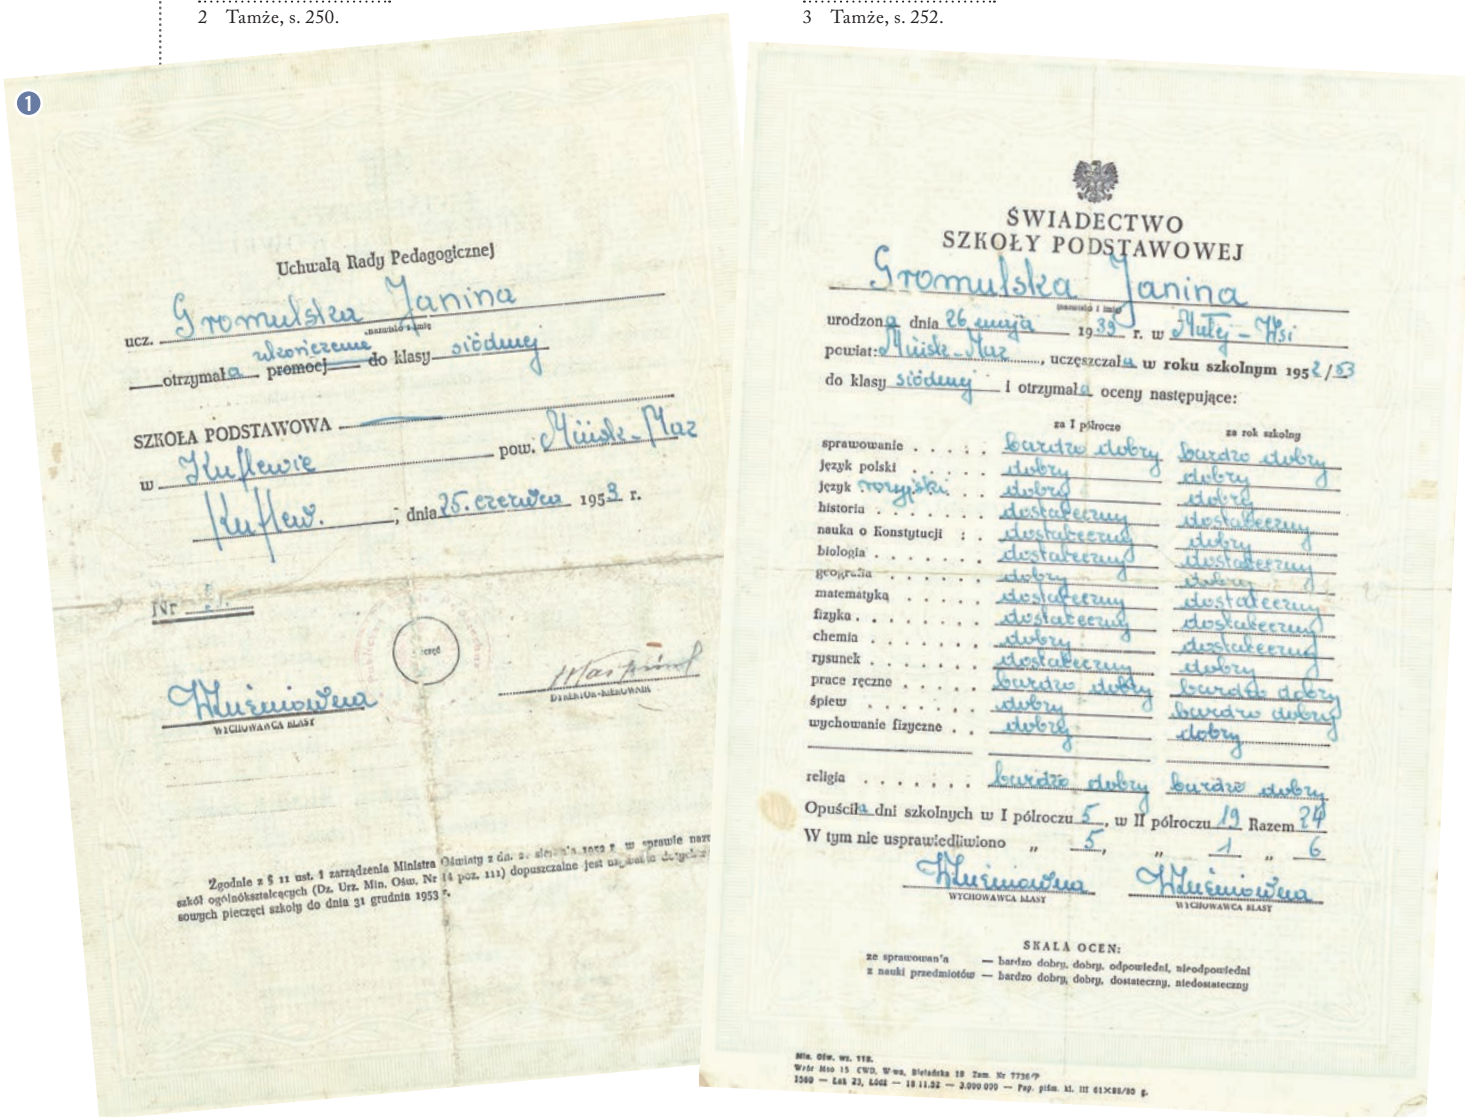 2 Tamże, s. 250.
3 Tamże, s. 252.
1
Uchwałą Rady Pedagogicznej
ucz. Gromulska Janina
nazwisko i imię
otrzymała ukończenie promocj do klasy siódmej
SZKOŁA PODSTAWOWA
w Kuflewie pow. Mińsk-Maz
Kuflew., dnia 25. czerwca 1953 r.
Nr
WYCHOWAWCA KLASY
DYREKTOR-KIEROWNIK
Zgodnie z § 11 ust. 1 zarządzenia Ministra Oświaty z dn. 2. sierpnia 1952 r. w sprawie nazw
szkół ogólnokształcących (Dz. Urz. Min. Ośw. Nr 14 poz. 111) dopuszczalne jest używanie dotych
sowych pieczęci szkoły do dnia 31 grudnia 1953 r.
ŚWIADECTWO
SZKOŁY PODSTAWOWEJ
Gromulska Janina
nazwisko i imię
urodzona dnia 26 maja 1939 r. w Małej-Wsi
powiat: Mińsk-Maz, uczęszczała w roku szkolnym 1952/53
do klasy siódmej i otrzymała oceny następujące:
za I półrocze za rok szkolny
sprawowanie . . . . : bardzo dobry bardzo dobry
język polski . . . . . dobry dobry
język rosyjski . . dobry dobry
historia . . . . . . . dostateczny dostateczny
nauka o Konstytucji : . dostateczny dobry
biologia . . . . . . . dostateczny dostateczny
geografia . . . . . . dobry dobry
matematyka . . . . . dostateczny dostateczny
fizyka . . . . . . . . dostateczny dostateczny
chemia . . . . . . . dobry dostateczny
rysunek . . . . . . . dostateczny dobry
prace ręczne . . . . . bardzo dobry bardzo dobry
śpiew . . . . . . . . dobry bardzo dobry
wychowanie fizyczne . . dobry dobry
religia . . . . . . . bardzo dobry bardzo dobry
Opuściła dni szkolnych w I półroczu 5, w II półroczu 19 Razem 24
W tym nie usprawiedliwiono „ 5, „ 1 „ 6
WYCHOWAWCA KLASY WYCHOWAWCA KLASY
SKALA OCEN:
ze sprawowan'a — bardzo dobry, dobry, odpowiedni, nieodpowiedni
z nauki przedmiotów — bardzo dobry, dobry, dostateczny, niedostateczny
Min. Ośw. ws. 118.
Wzór Mao 15 CWD, W-wa, Bielańska 18 Zam. Nr 7736/P
3560 — Łak 23, Łódź — 18 11.52 — 3.000 000 — Pap. piśm. kl. III 61×86/80 g.